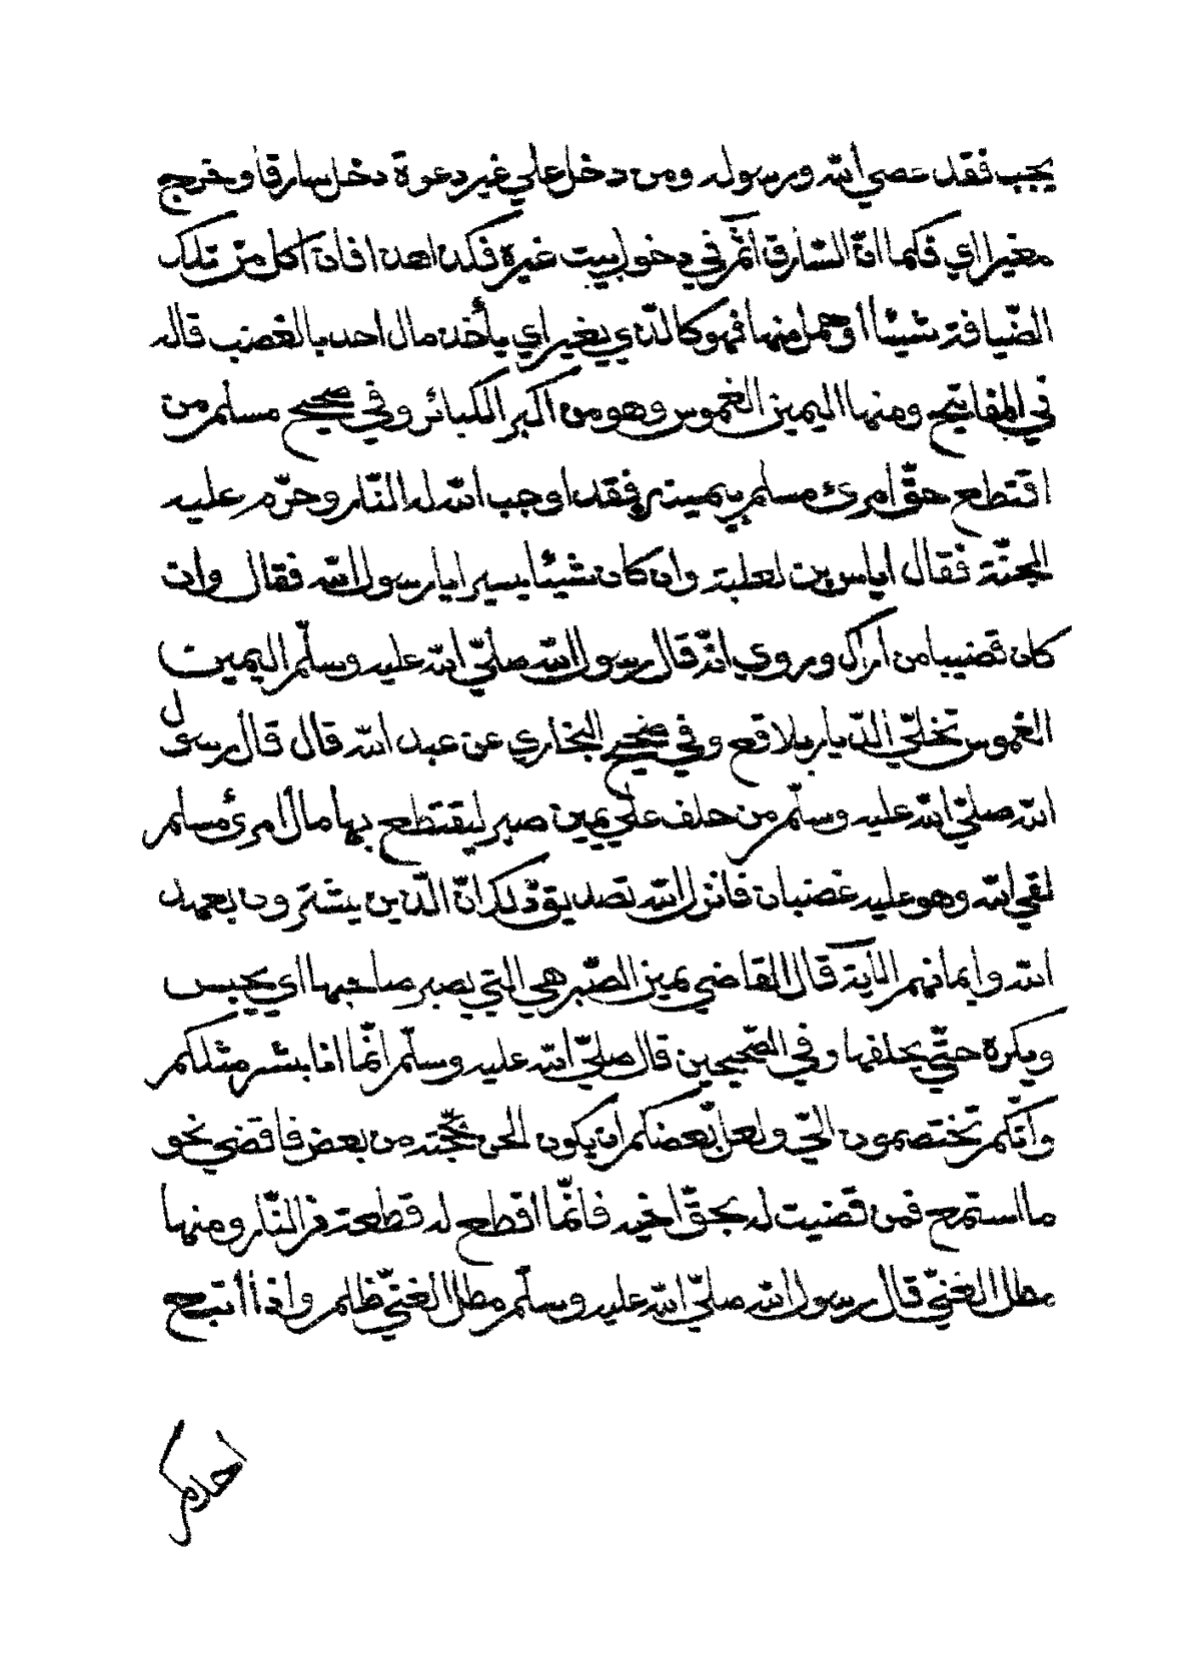 يجب فقد عصي الله ورسوله ومن دخل علي غير دعوة دخل سارقا وخرج
مغيرا اي فكما انّ السّارق اثم في دخول بيت غيره فكذا هذا فان اكل من تلك
الضّيافة شيئا او حمل منها فهو كالّذي يغير اي يأخذ مال احد بالغصب قاله
في المفاتيح ومنها اليمين الغموس وهو من اكبر الكبائر وفي صحيح مسلم من
اقتطع حقّ امرئ مسلم بيمينه فقد اوجب الله له النّار وحرّم عليه
الجنّة فقال اياس بن لعلبة وان كان شيئا يسيرا يا رسول الله فقال وان
كان قضيبا من اراك وروي انّه قال رسول الله صلّي الله عليه وسلّم اليمين
الغموس تخلّي الدّيار بلاقع وفي صحيح البخاري عن عبد الله قال قال رسول
الله صلّي الله عليه وسلّم من حلف علي يمين صبر ليقتطع بها مال أمرئ مسلم
لقي الله وهو عليه غضبان فانزل الله تصديق ذلك انّ الّذين يشترون بعهد
الله وايمانهم الاية قال القاضي يمين الصّبر هي التي يصبر صاحبها اي يحبس
ويكره حتّي يحلفها وفي الصّحيحين قال صلّي الله عليه وسلّم انّما انا بشر مثلكم
وانّكم تختصمون اليّ ولعلّ بعضكم ان يكون الحن بحجّته من بعض فاقضي نحو
ما استمع فمن قضيت له بحقّ اخيه فانّما اقطع له قطعة من النّار ومنها
مطل الغنيّ قال رسول الله صلّي الله عليه وسلّم مطل الغنيّ ظلم واذا أتبع
احدكم